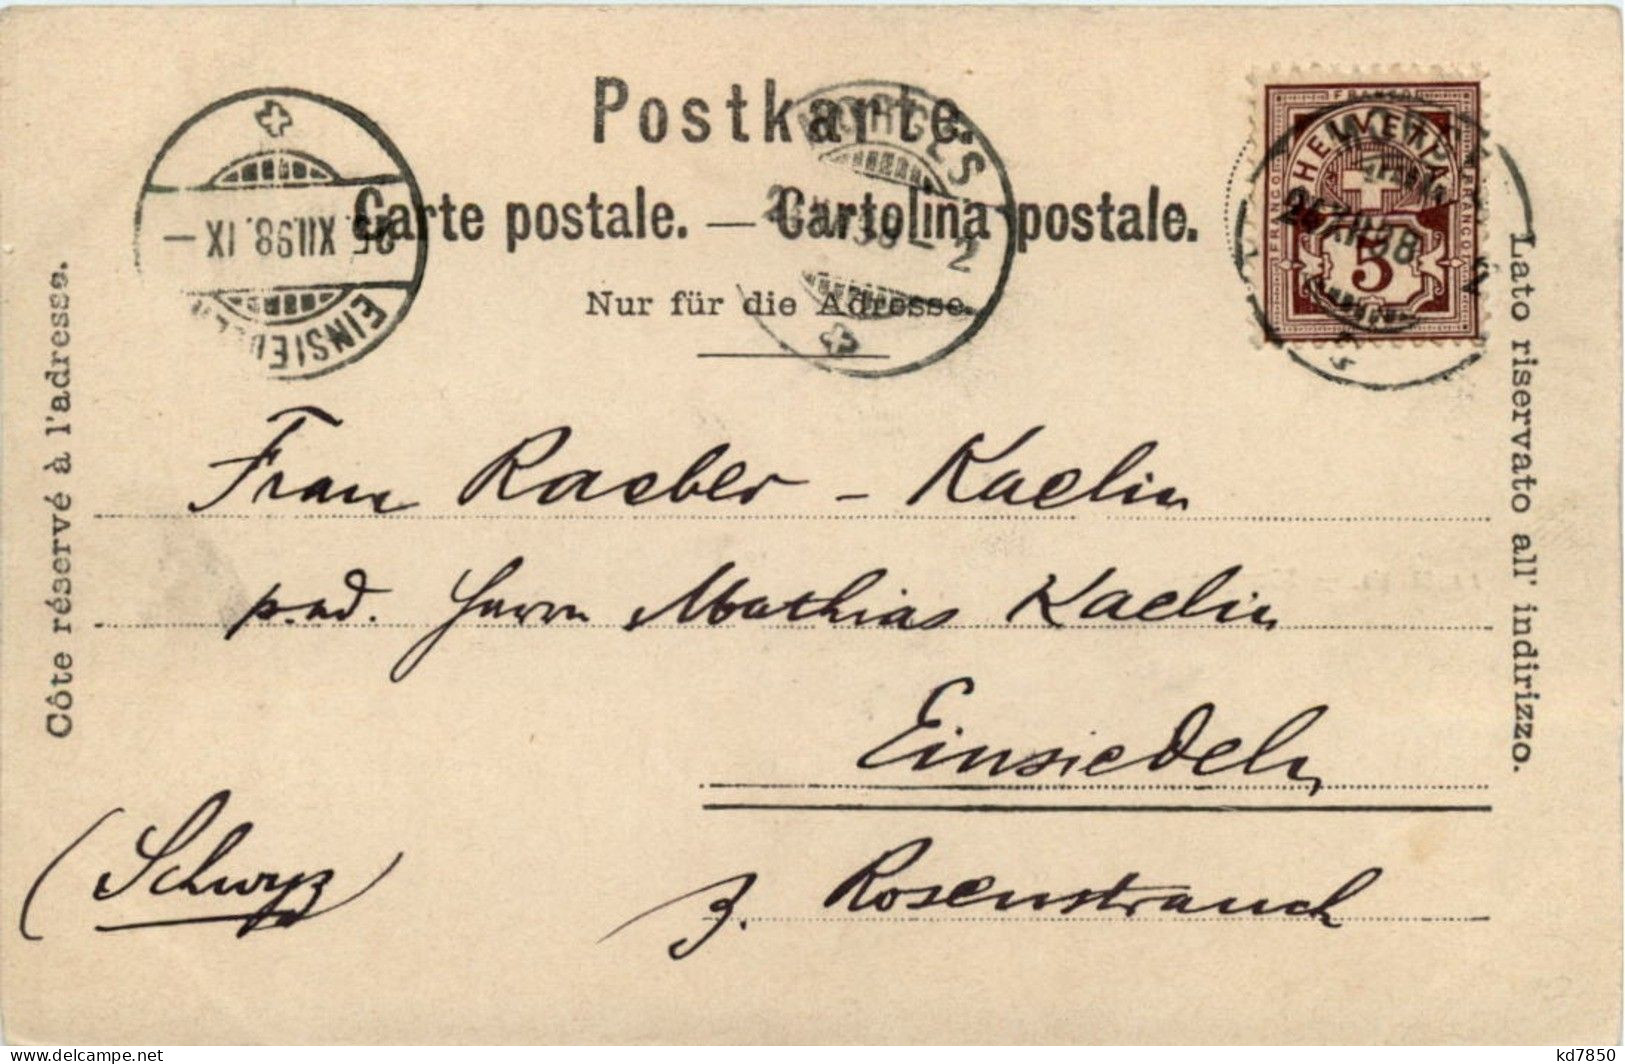 Postkarte.
Carte postale. — Cartolina postale.
Nur für die Adresse.
Côte réservé à l'adresse.
Lato riservato all' indirizzo.
EINSIEDELN
25. XII.98. IX —
MORGES
2
FRANCO
HELVETIA
FRANCO
FRANCO
5
XII 98
2
Frau Raeber - Kaelin
p. ad. Herrn Mathias Kaelin
Einsiedeln
(Schwyz)
z. Rosenstrauch
kd7850